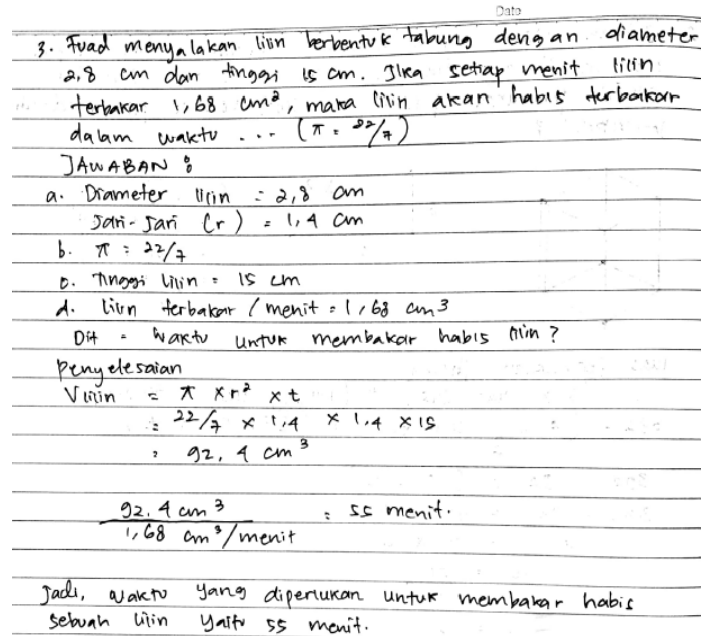 Date
3. Fuad menyalakan lilin berbentuk tabung dengan diameter
2,8 cm dan tinggi 15 cm. Jika setiap menit lilin
terbakar 1,68 cm³, maka lilin akan habis terbakar
dalam waktu ... (π = 22/7)
JAWABAN :
a. Diameter lilin = 2,8 cm
Jari-Jari (r) = 1,4 cm
b. π = 22/7
c. Tinggi lilin = 15 cm
d. lilin terbakar / menit = 1,68 cm3
Dit = Waktu untuk membakar habis lilin ?
Penyelesaian
V lilin = π x r² x t
= 22/7 x 1,4 x 1,4 x 15
= 92,4 cm³
92,4 cm³ / 1,68 cm³/menit = 55 menit.
Jadi, waktu yang diperlukan untuk membakar habis
sebuah lilin yaitu 55 menit.